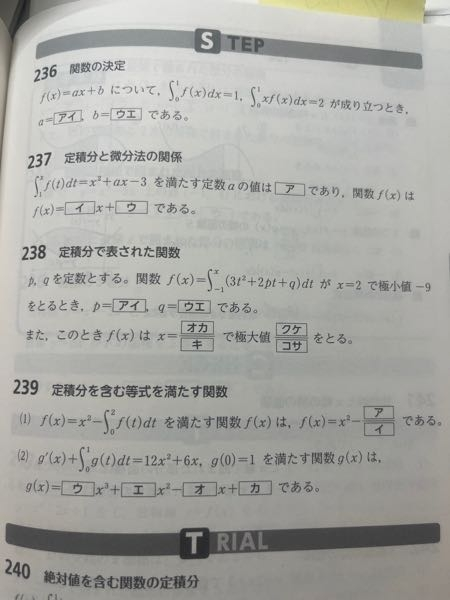 STEP
236 関数の決定
f(x)=ax+b について, ∫₀¹f(x)dx=1, ∫₀¹xf(x)dx=2 が成り立つとき,
a=アイ, b=ウエ である。
237 定積分と微分法の関係
∫₁ˣf(t)dt=x²+ax-3 を満たす定数aの値は ア であり, 関数f(x)は
f(x)=イx+ウ である。
238 定積分で表された関数
p, qを定数とする。関数 f(x)=∫₋₁ˣ(3t²+2pt+q)dt が x=2 で極小値-9
をとるとき, p=アイ, q=ウエ である。
また, このとき f(x) は x=オカ/キ で極大値 クケ/コサ をとる。
239 定積分を含む等式を満たす関数
(1) f(x)=x²-∫₀²f(t)dt を満たす関数f(x)は, f(x)=x²-ア/イ である。
(2) g′(x)+∫₀¹g(t)dt=12x²+6x, g(0)=1 を満たす関数g(x)は,
g(x)=ウx³+エx²-オx+カ である。
TRIAL
240 絶対値を含む関数の定積分